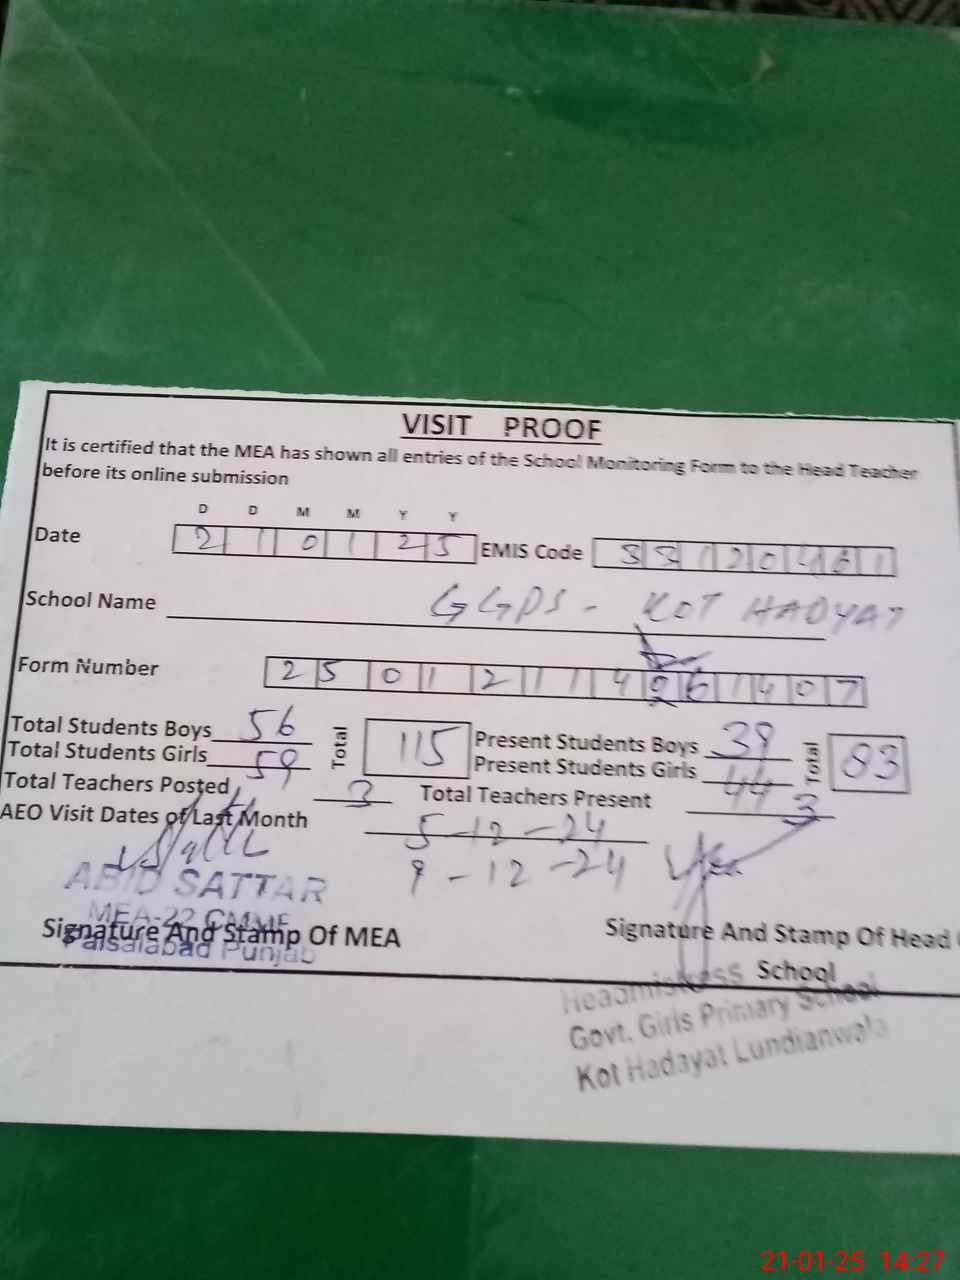 VISIT PROOF
It is certified that the MEA has shown all entries of the School Monitoring Form to the Head Teacher
before its online submission
D D M M Y Y
Date 2 1 0 1 2 5 EMIS Code 3 3 1 2 0 4 6 1
School Name GGPS - KOT HADYAT
Form Number 2 5 0 1 2 1 1 4 2 6 1 4 0 7
Total Students Boys 56 Total 115 Present Students Boys 39 Total 83
Total Students Girls 59 Present Students Girls 44
Total Teachers Posted 3 Total Teachers Present 3
AEO Visit Dates of Last Month 5-12-24
9-12-24
ABID SATTAR
MEA-22 CMMF
Faisalabad Punjab
Signature And Stamp Of MEA Signature And Stamp Of Head
School
Headmistress
Govt. Girls Primary School
Kot Hadayat Lundianwala
21-01-25 14:27